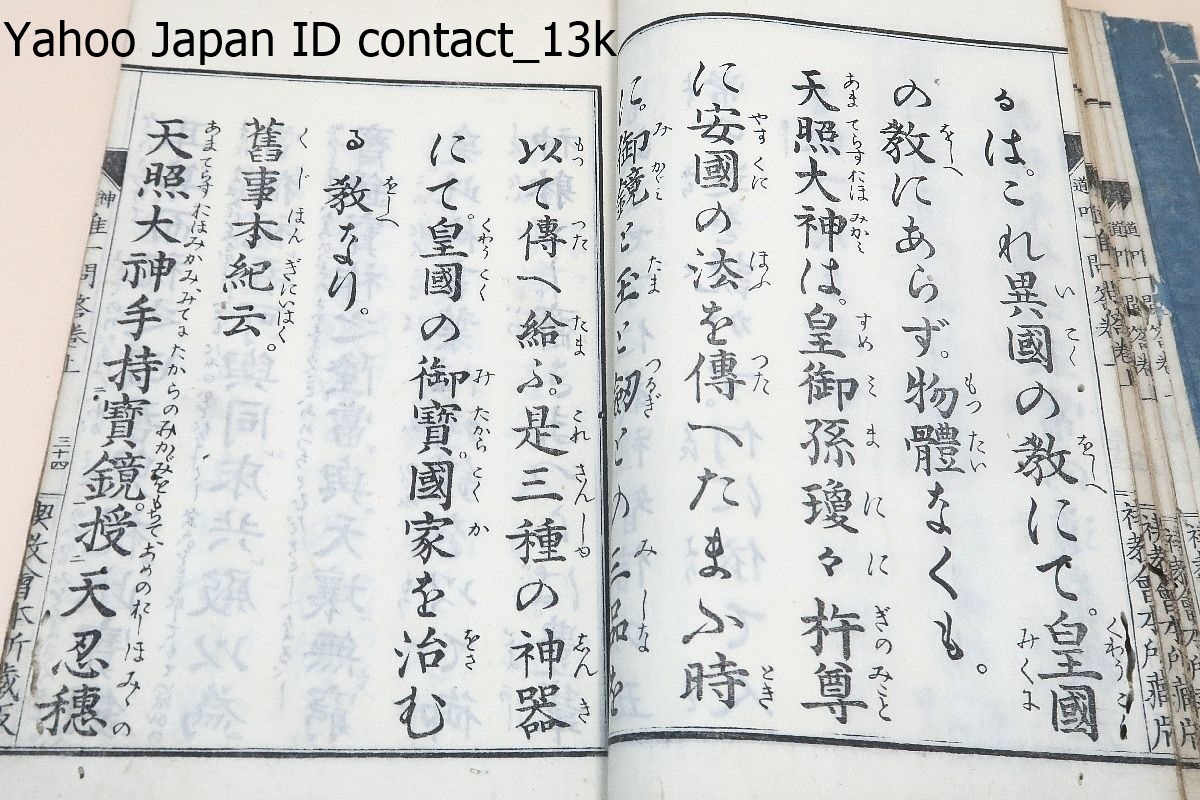 Yahoo Japan ID contact_13k
るは。これ異國の教にて。皇國
の教にあらず。物體なくも。
天照大神は。皇御孫瓊々杵尊
に安國の法を傳へたまふ時
に。御鏡と玉と劔との三品を
以て傳へ給ふ。是三種の神器
にて。皇國の御寶。國家を治む
る教なり。
舊事本紀云。
天照大神手持寶鏡。授天忍穗
三十四
禊教會本所藏版